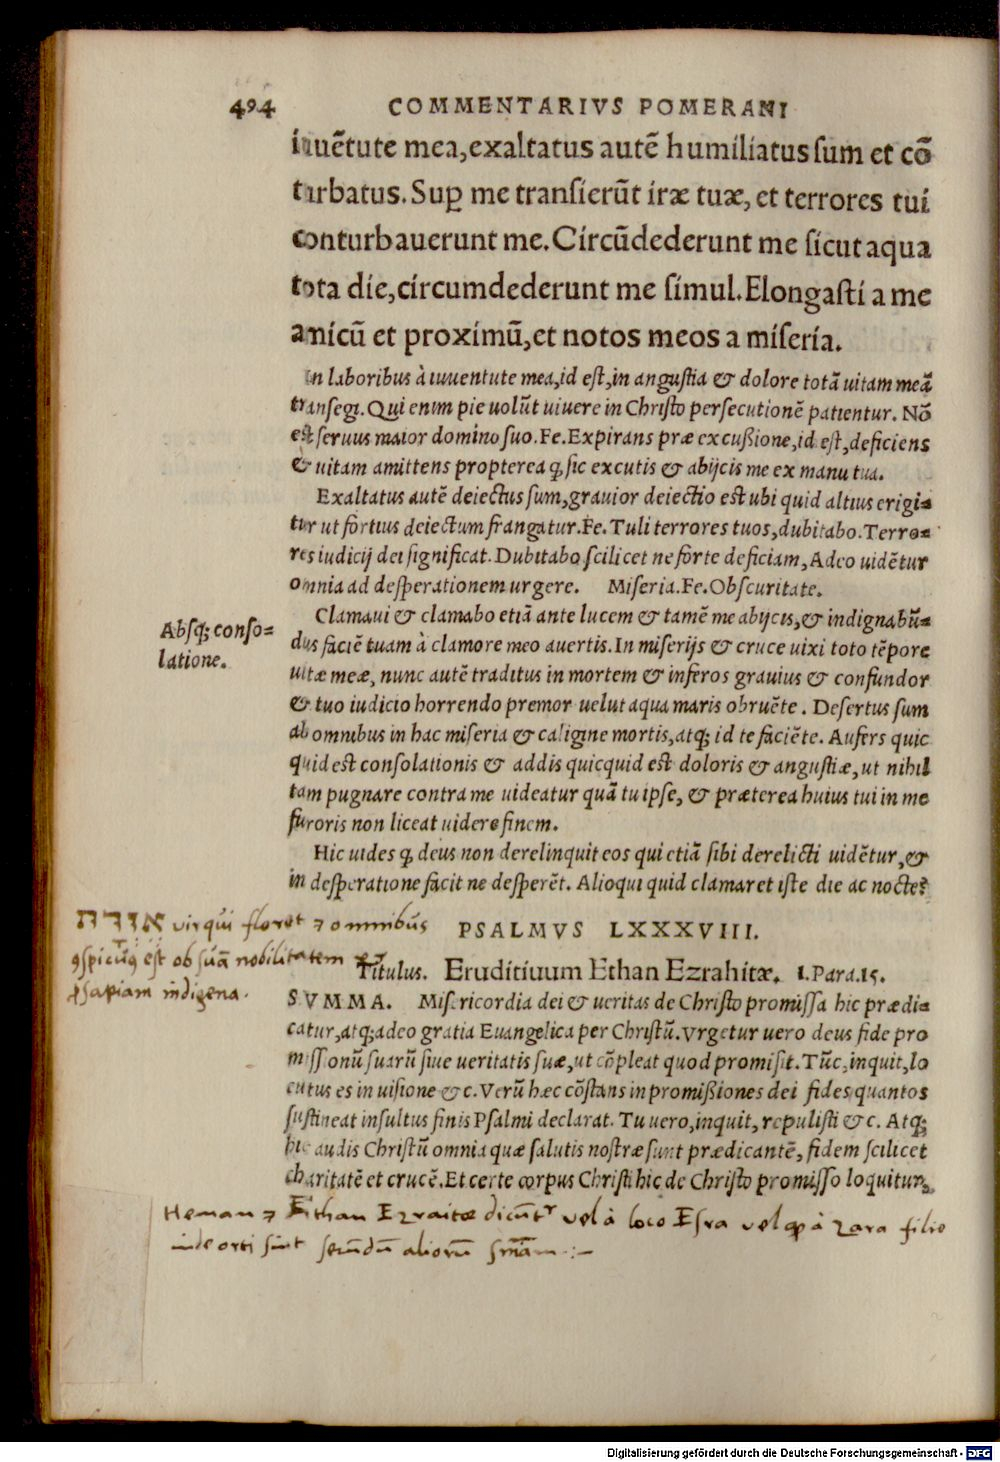 494 COMMENTARIVS POMERANI
iuuētute mea, exaltatus autē humiliatus sum et cō
turbatus. Sup me transierūt iræ tuæ, et terrores tui
conturbauerunt me. Circūdederunt me sicut aqua
tota die, circumdederunt me simul. Elongasti a me
amicū et proximū, et notos meos a miseria.
In laboribus à iuuentute mea, id est, in angustia & dolore totā uitam meā
transegi. Qui enim pie uolūt uiuere in Christo persecutionē patientur. Nō
est seruus maior domino suo. Fe. Expirans præ excußione, id est, deficiens
& uitam amittens propterea ꝙ sic excutis & abijcis me ex manu tua.
Exaltatus autē deiectus sum, grauior deiectio est ubi quid altius erigi=
tur ut fortius deiectum frangatur. Fe. Tuli terrores tuos, dubitabo. Terro=
res iudicij dei significat. Dubitabo scilicet ne forte deficiam, Adeo uidētur
omnia ad desperationem urgere. Miseria. Fe. Obscuritate.
Clamaui & clamabo etiā ante lucem & tamē me abijcis, & indignabū=
dus faciē tuam à clamore meo auertis. In miserijs & cruce uixi toto tēpore
uitæ meæ, nunc autē traditus in mortem & inferos grauius & confundor
& tuo iudicio horrendo premor uelut aqua maris obruēte. Desertus sum
ab omnibus in hac miseria & caligine mortis, atq; id te faciēte. Aufers quic
quid est consolationis & addis quicquid est doloris & angustiæ, ut nihil
tam pugnare contra me uideatur quā tu ipse, & præterea huius tui in me
furoris non liceat uidere finem.
Absq; conso=
latione.
Hic uides ꝙ deus non derelinquit eos qui etiā sibi derelicti uidētur, &
in desperatione facit ne desperēt. Alioqui quid clamaret iste die ac nocte?
PSALMVS LXXXVIII.
vir qui floret ⁊ omnibus
ꝯspicuꝯ est ob suā nobilitatem &
ꝓsapiam indigena.
Titulus. Eruditiuum Ethan Ezrahitæ. 1. Para. 15.
SVMMA. Misericordia dei & ueritas de Christo promissa hic prædi=
catur, atq; adeo gratia Euangelica per Christū. Vrgetur uero deus fide pro
missionū suarū siue ueritatis suæ, ut cōpleat quod promisit. Tūc, inquit, lo
cutus es in uisione &c. Verū hæc cōstans in promißiones dei fides quantos
sustineat insultus finis Psalmi declarat. Tu uero, inquit, repulisti &c. Atq;
hic audis Christū omnia quæ salutis nostræ sunt prædicantē, fidem scilicet
charitatē et crucē. Et certe corpus Christi hic de Christo promisso loquitur,
Heman ⁊ Eithan Ezraitæ dicūtr vel à loco Esra vel ꝙ à zara filio
inde orti sunt secūdū aliorū smām :~
Digitalisierung gefördert durch die Deutsche Forschungsgemeinschaft - DFG